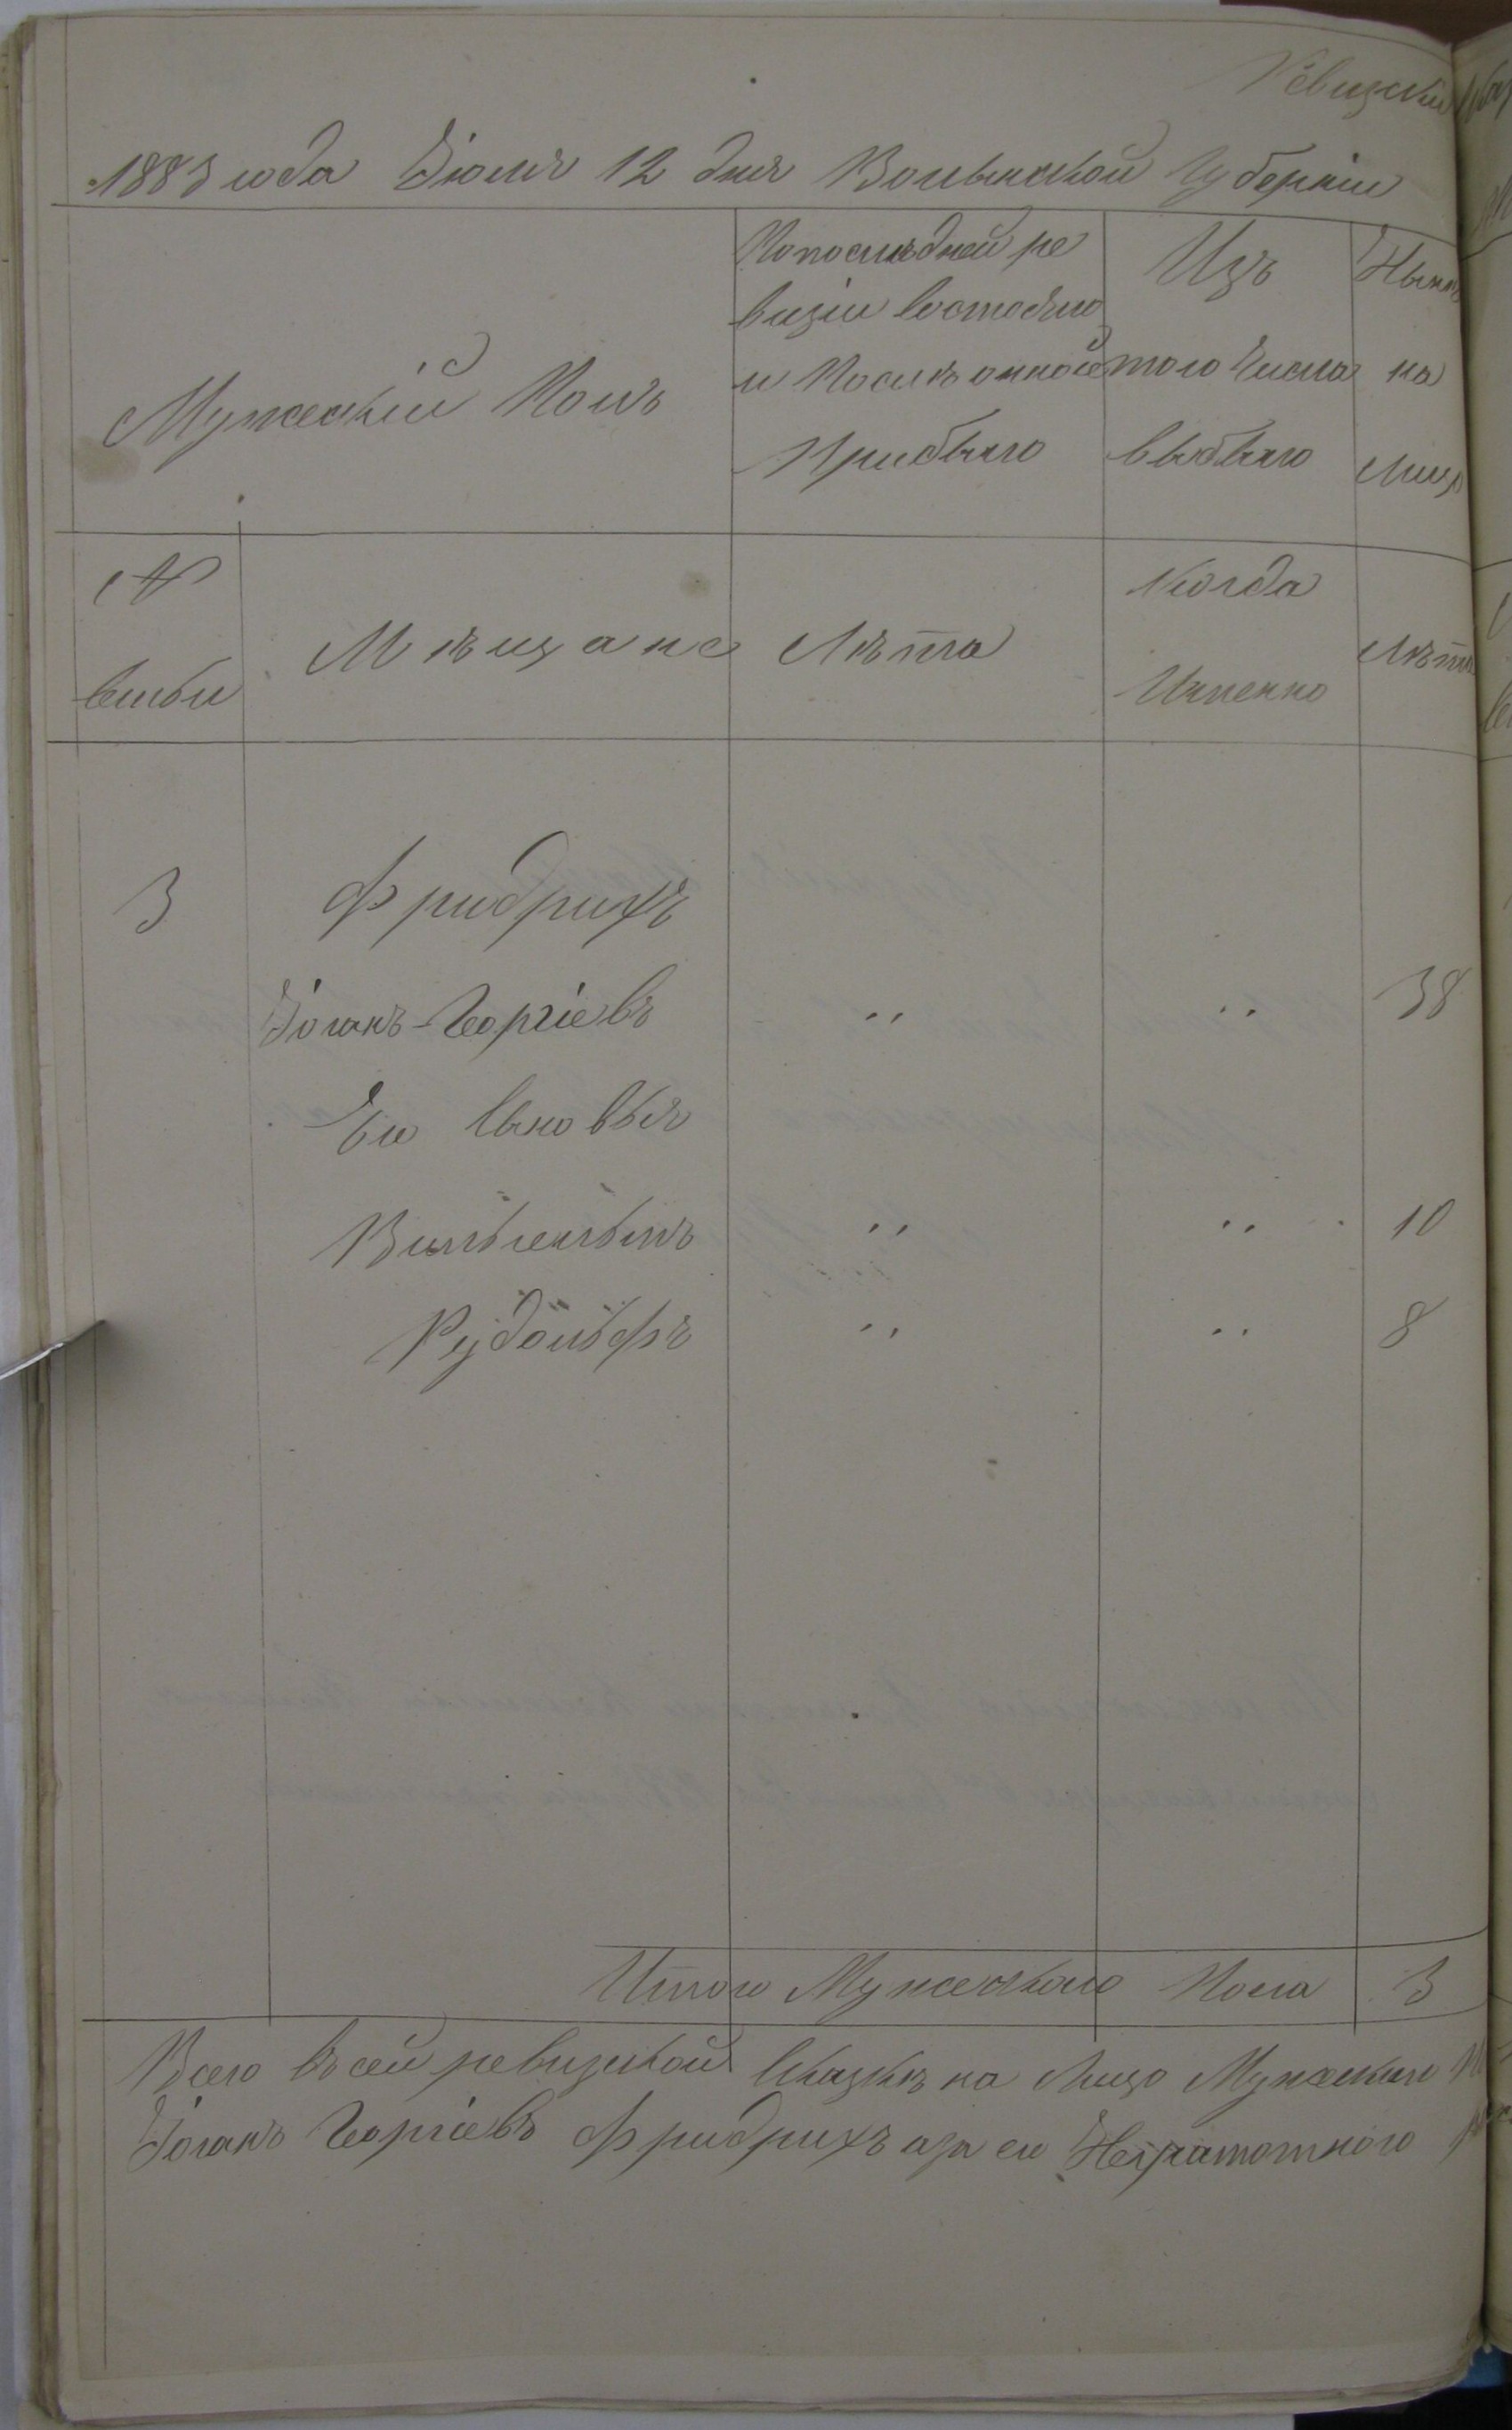 Ревизская
1883 года Іюля 12 дня Волынской Губерніи
Мужескій Полъ
Попослѣдней ре
визіи состояло
и Послѣ онной
Прибыло
Изъ
того Числа
выбыло
Нынѣ
на
Лицо
№
семьи
Мѣщане
Лѣта
Когда
Имменно
Лѣта
3 Фридрихъ
Іоганъ-Георгіевъ " " 38
Его Сыновья
Вильгельмъ " " 10
Рудольфъ " " 8
Итого Мужескаго Пола 3
Всего всей ревизской Сказкѣ на Лицо Мужскаго
Іоганъ Георгіевъ Фридрихъ аза его Неграмотного